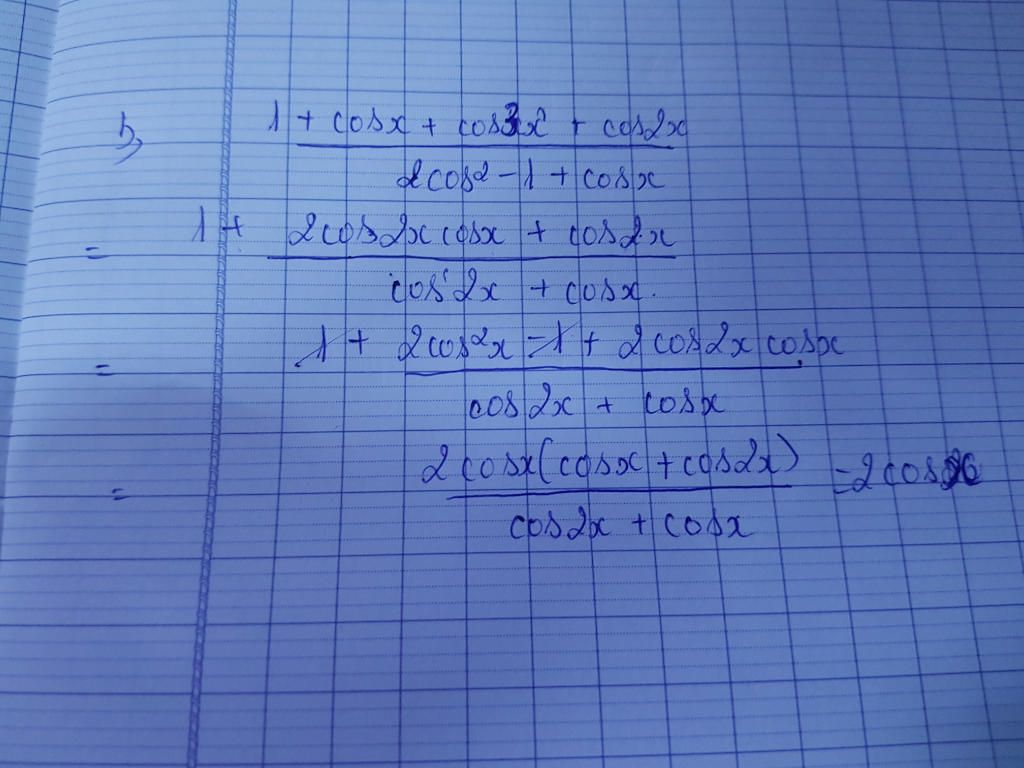 b, 1 + cosx + cos3x + cos2x
2cos² - 1 + cosx
= 1 + 2cos2x cosx + cos2x
cos2x + cosx.
= 1 + 2cos²x - 1 + 2cos2x cosx
cos2x + cosx
= 2cosx(cosx + cos2x) = 2cosx
cos2x + cosx